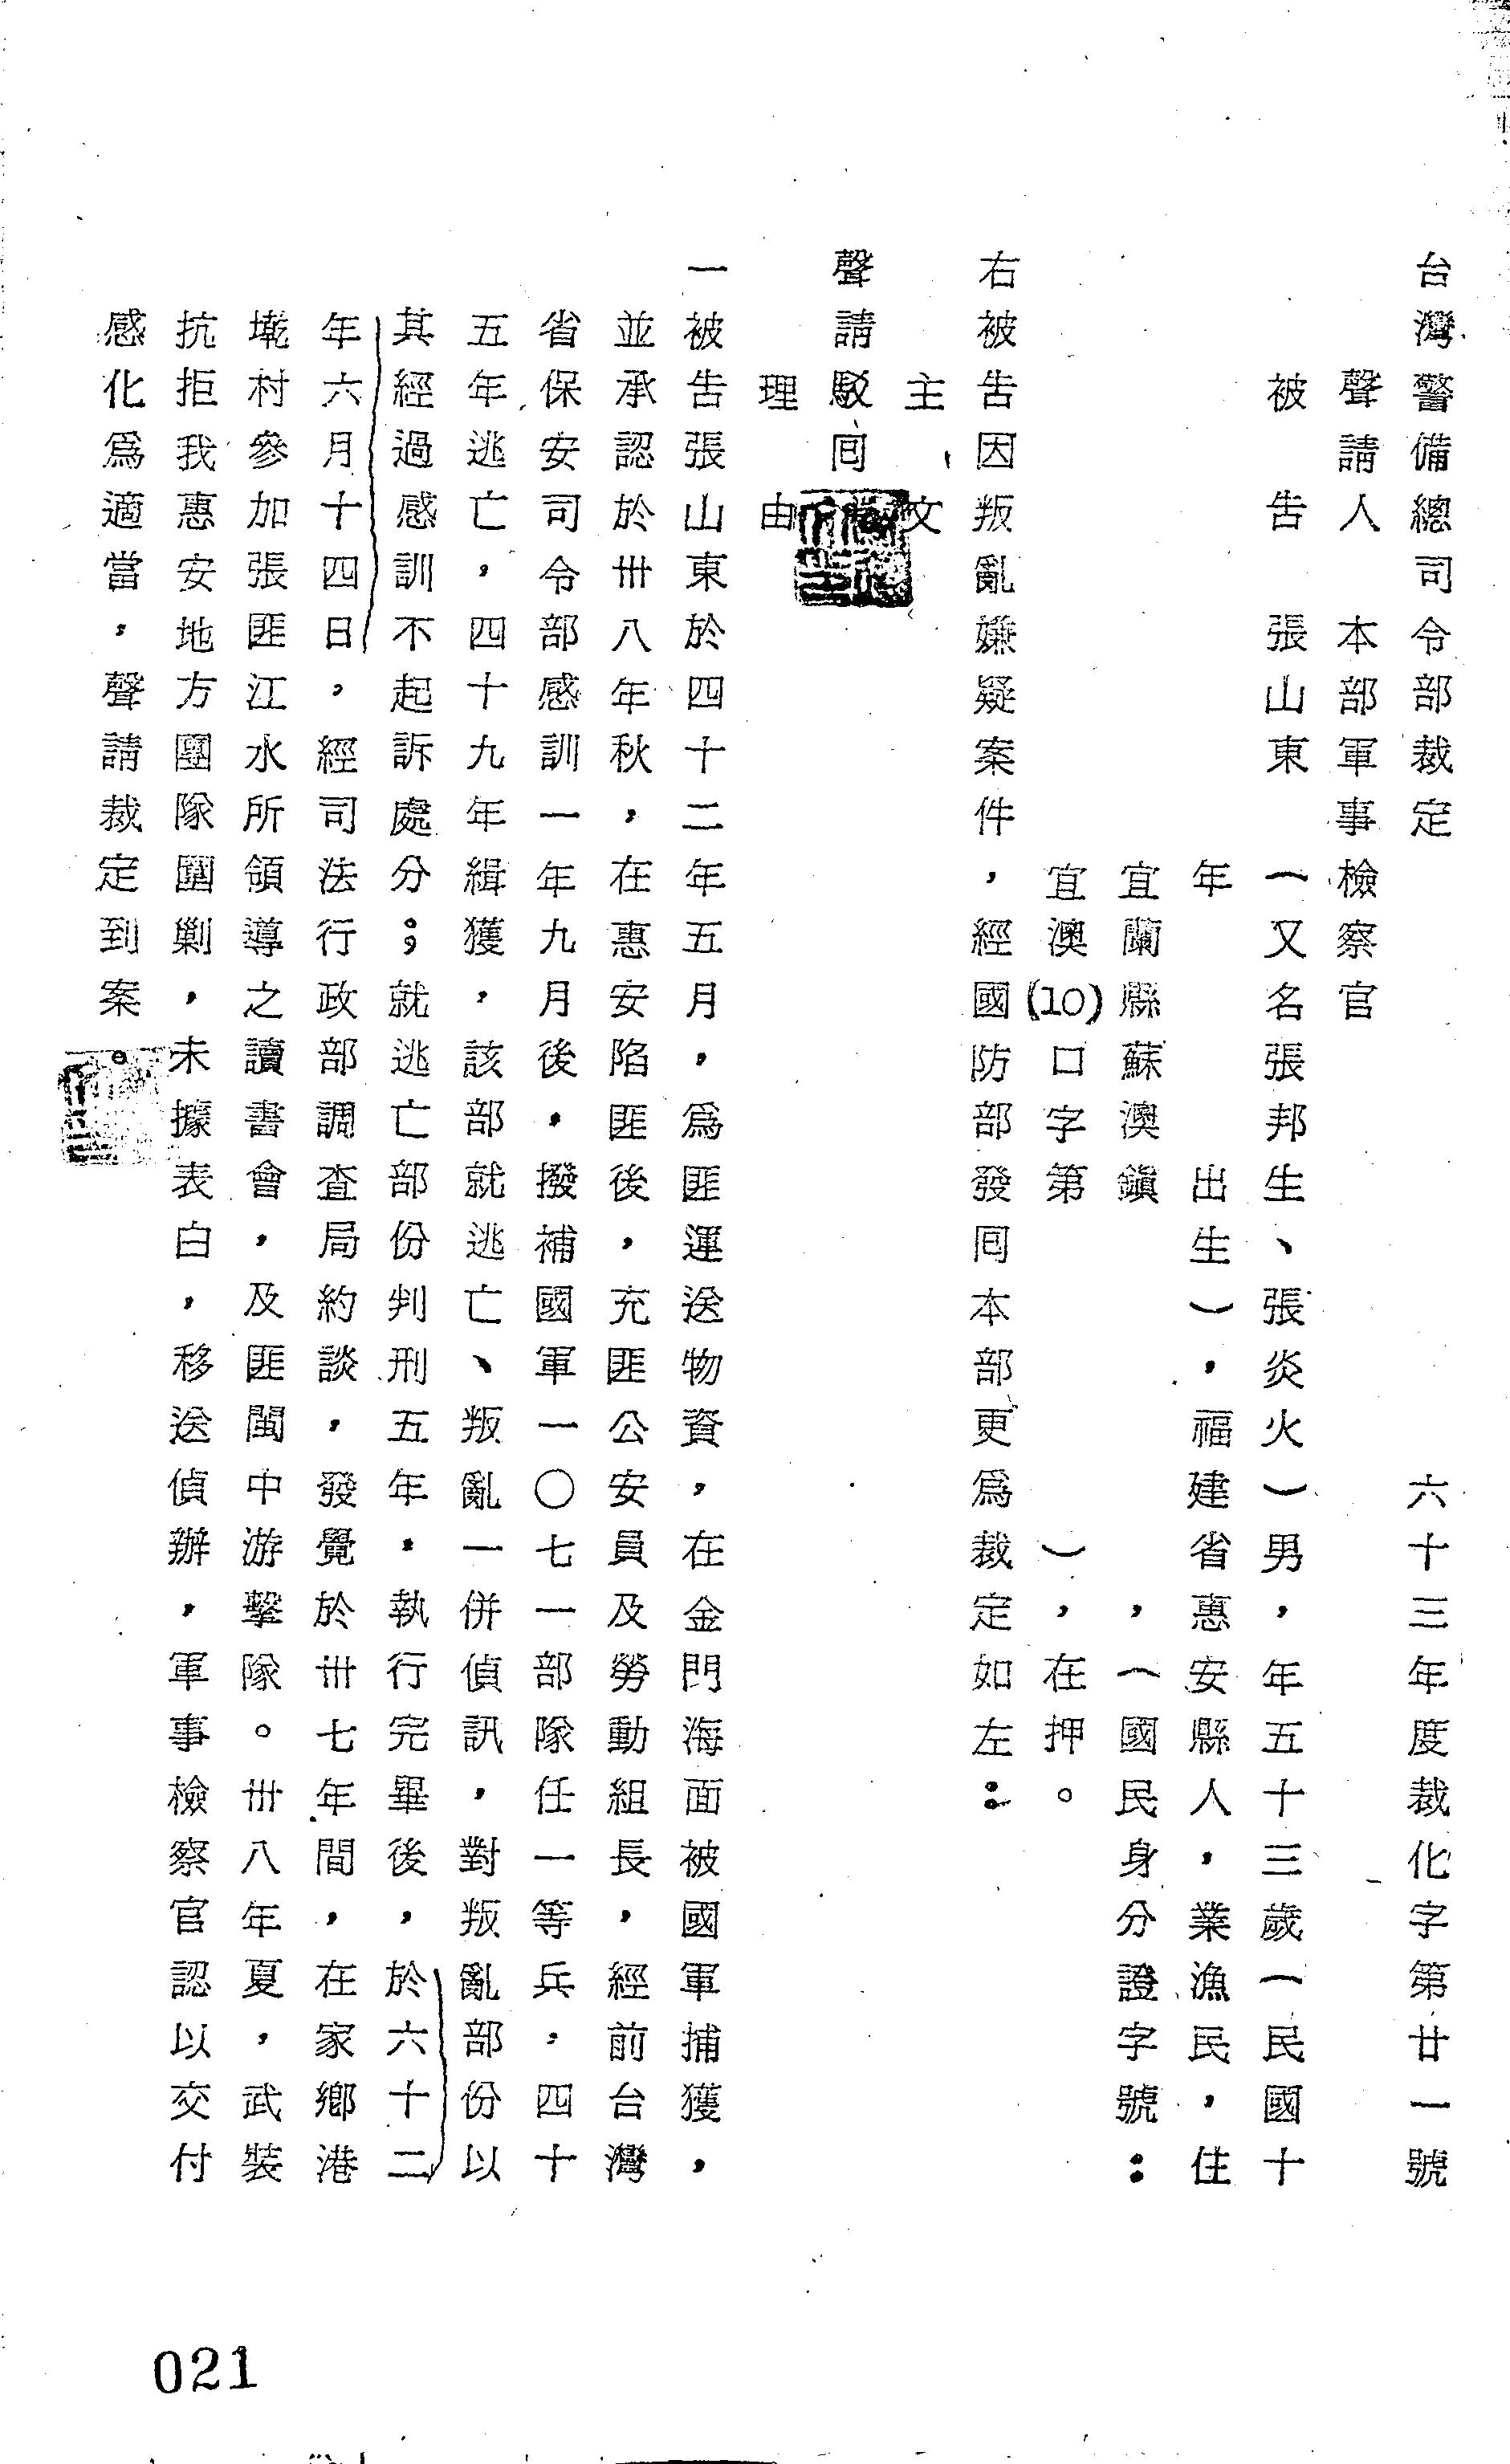 台灣警備總司令部裁定　六十三年度裁化字第廿一號
聲請人　本部軍事檢察官
被告　張山東　（又名張邦生、張炎火）男，年五十三歲（民國十
年　出生），福建省惠安縣人，業漁民，住
宜蘭縣蘇澳鎮　，（國民身分證字號：
宜澳(10)口字第　），在押。
右被告因叛亂嫌疑案件，經國防部發囘本部更爲裁定如左：
主文
聲請駁囘
理由
一被告張山東於四十二年五月，爲匪運送物資，在金門海面被國軍捕獲，
並承認於卅八年秋，在惠安陷匪後，充匪公安員及勞動組長，經前台灣
省保安司令部感訓一年九月後，撥補國軍一〇七一部隊任一等兵，四十
五年逃亡，四十九年緝獲，該部就逃亡、叛亂一併偵訊，對叛亂部份以
其經過感訓不起訴處分；就逃亡部份判刑五年，執行完畢後，於六十二
年六月十四日，經司法行政部調查局約談，發覺於卅七年間，在家鄉港
墘村參加張匪江水所領導之讀書會，及匪閩中游擊隊。卅八年夏，武裝
抗拒我惠安地方團隊圍剿，未據表白，移送偵辦，軍事檢察官認以交付
感化爲適當，聲請裁定到案。
021